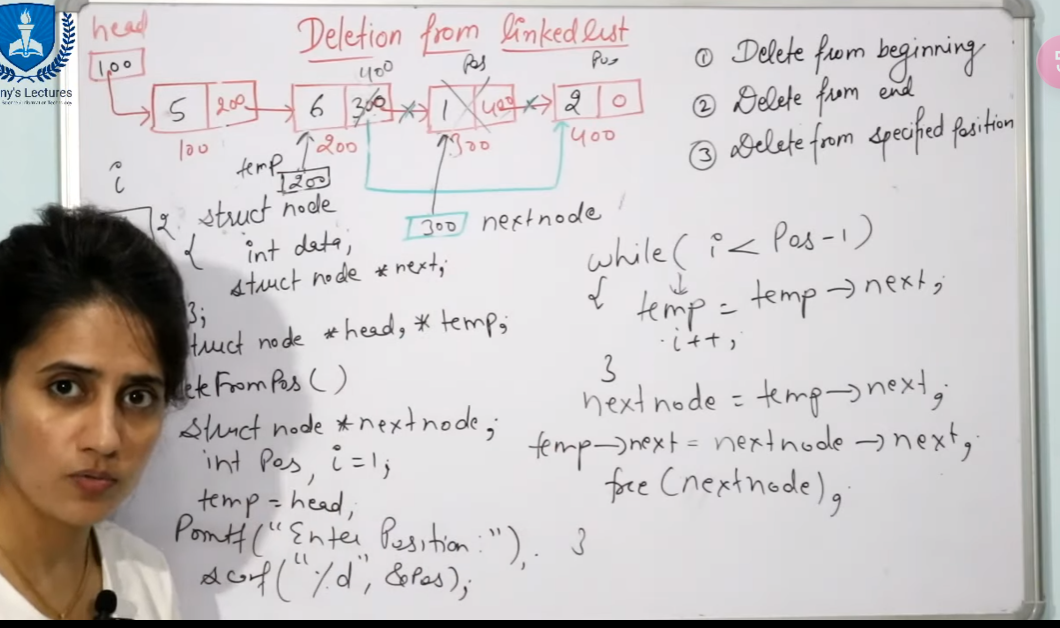 head
Deletion from linked list
100
ny's Lectures
400
Pos
Pos
5 200
6 300
1 400
2 0
100
200
300
400
temp
200
i
2
300 nextnode
① Delete from beginning
② Delete from end
③ Delete from specified position
struct node
{ int data;
struct node *next;
};
truct node *head, *temp;
eteFromPos ( )
struct node *nextnode;
int Pos, i=1;
temp = head;
Printf("Enter Position:");
scanf("%d", &Pos);
while( i < Pos-1)
{ temp = temp → next;
i++;
}
nextnode = temp→next;
temp→next = nextnode → next;
free (nextnode);
}